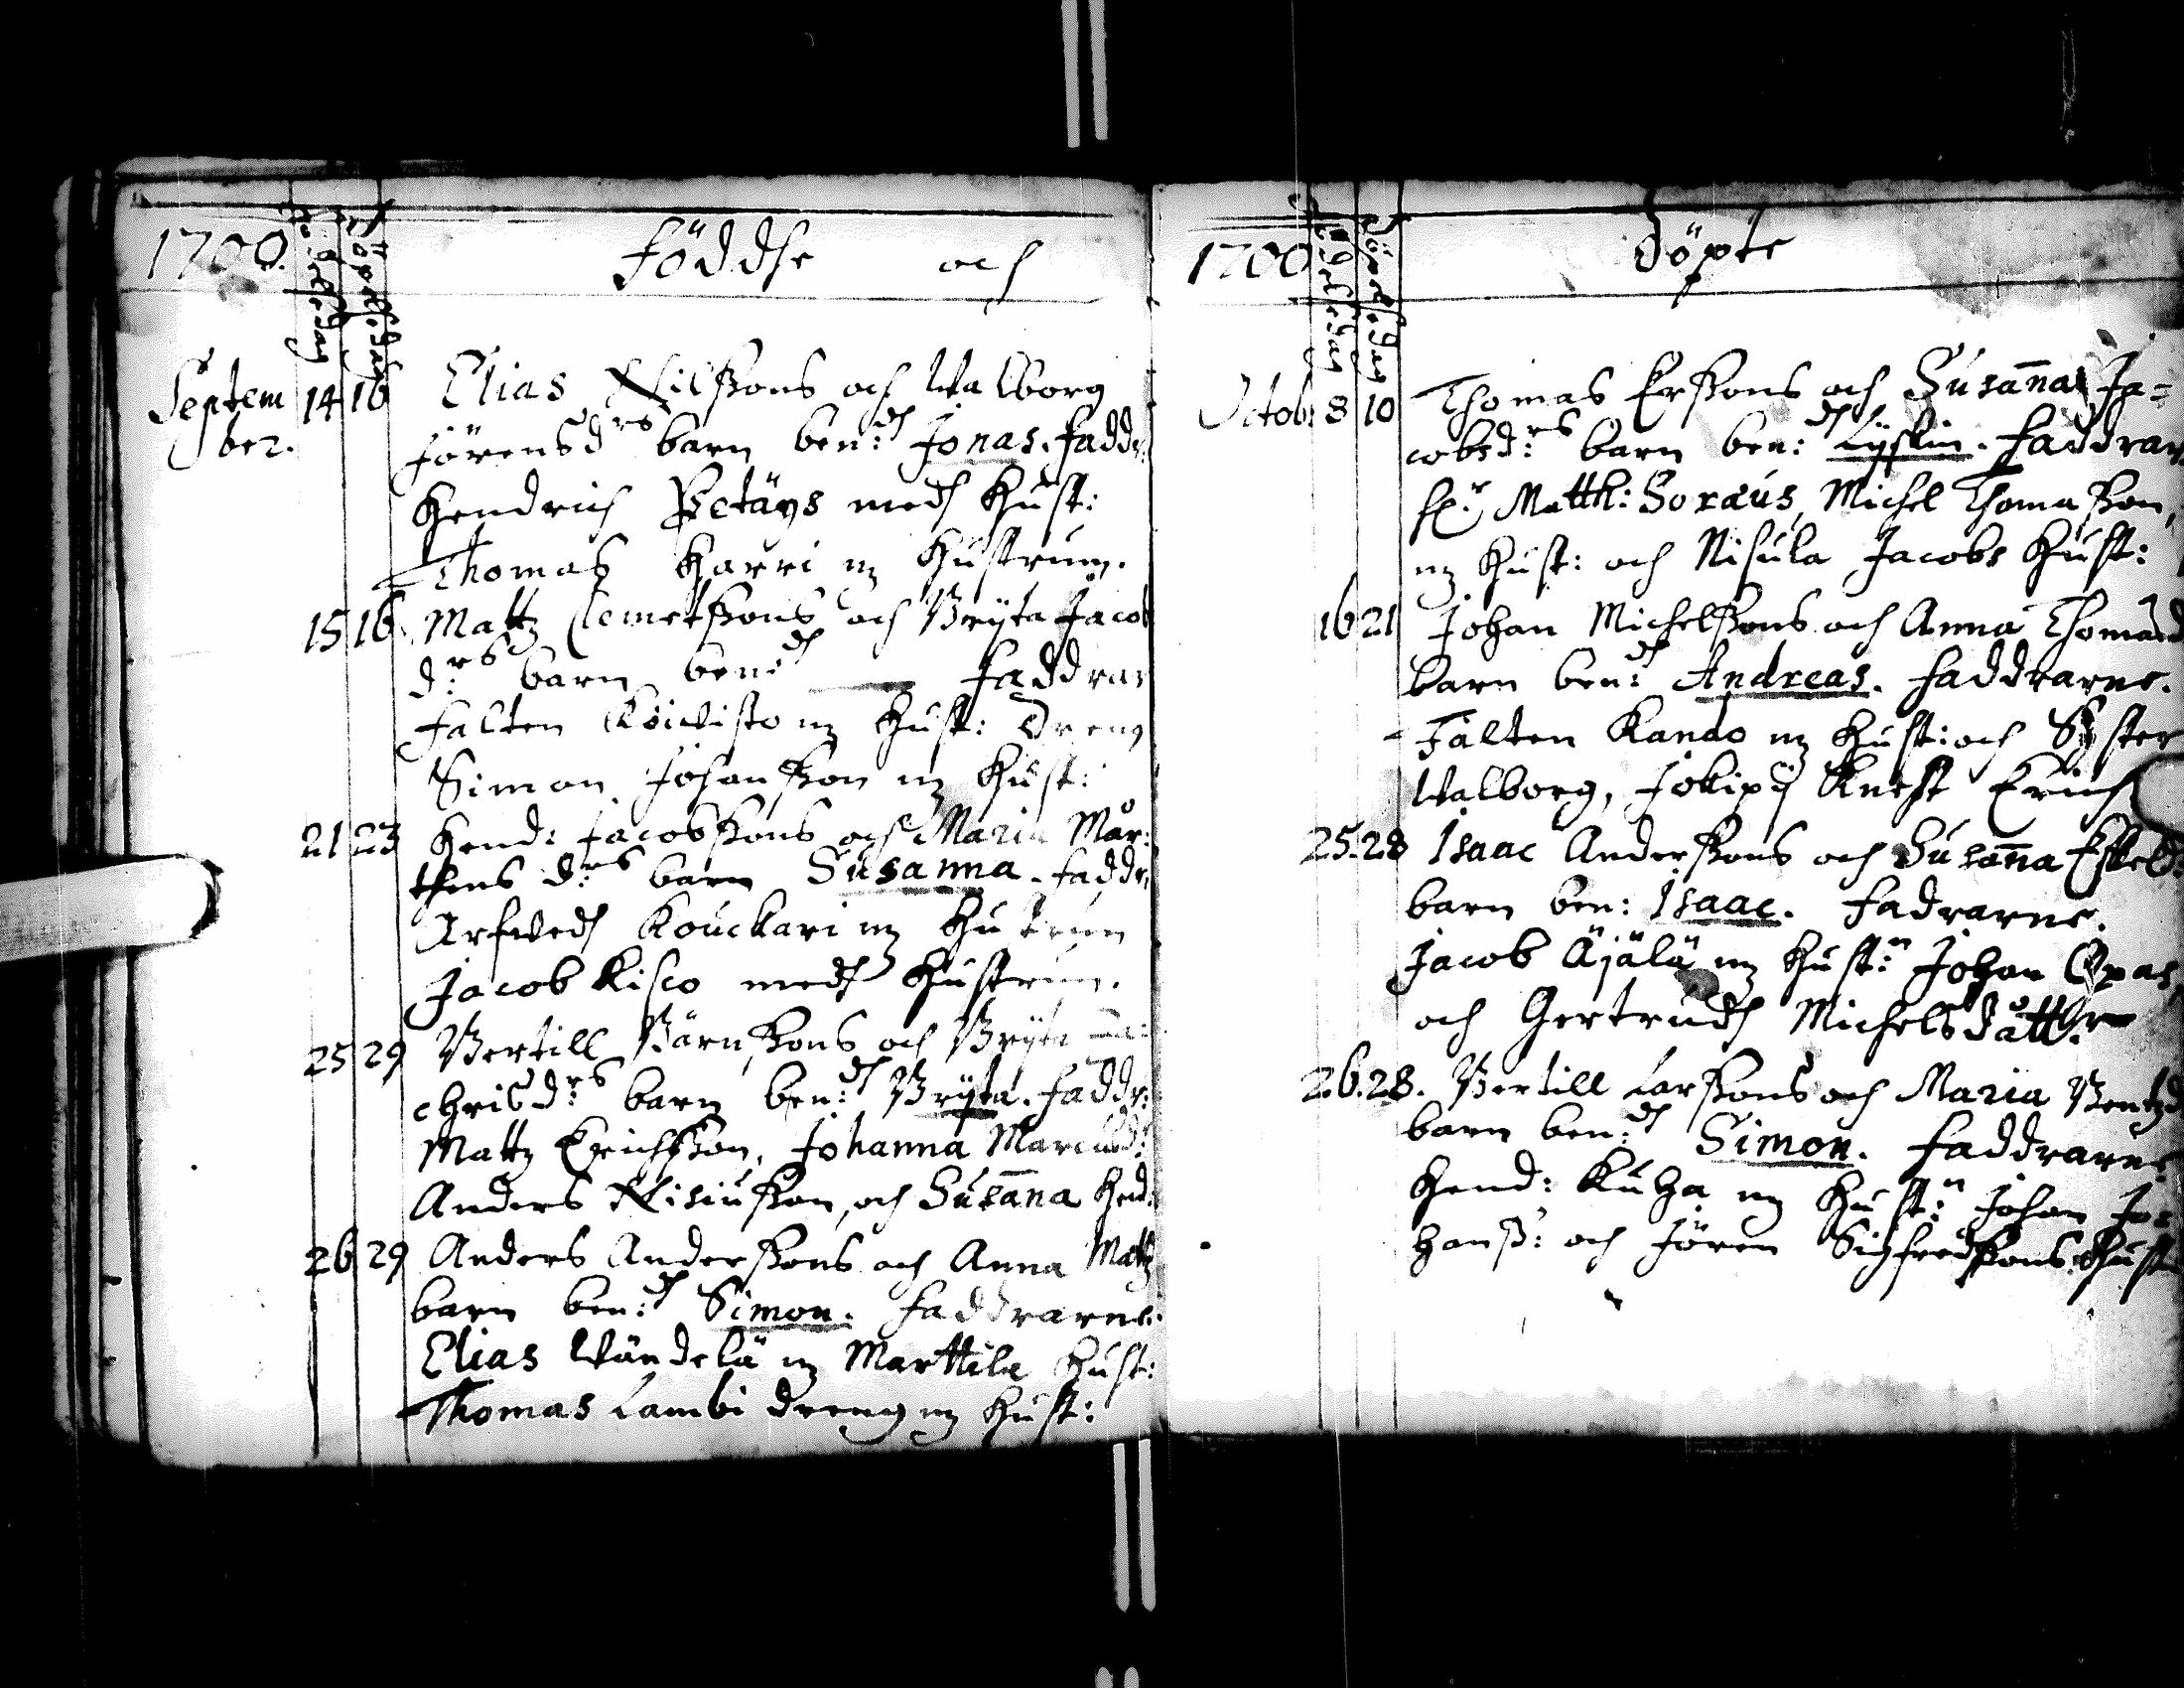 1700.
Födelsedag
Döpelsedag
Föddse och
Septem
ber.
14 16 Elias Nilssons och Walborg
Jörensd:rs barn ben:d Jonas. Faddr:
Hendrich Petäys med Hust:
Thomas Harri m Hustrun.
15 16 Mattz Clemetssons och Bryta Jacob
d:rs barn ben:d Faddrar
Falten Koivisto m Hust: Dreng
Simon Johansson m Hust:
21 23 Hend: Jacobssons och Maria Mår:
thens d:rs barn Susanna. Faddr:
Arfwed Kouckari m Hustrun
Jacob Kisco med Hustrun.
25 29 Bertill Börnssons och Bryta
chrisd:rs barn ben:d Bryta. Faddr:
Mattz Erichsson, Johanna Marcusd:
Anders Nisiusson, och Susanna Hend:
26 29 Anders Anderssons och Anna Mattz
barn ben:d Simon. Faddrarne:
Elias Wändelä m Marttila Hust:
Thomas Lambi dreng m Hust:
1700
Födelsedag
Döpelsedag
Döpte
Octob: 8 10 Thomas Erssons och Susanna Ja=
cobsd:rs barn ben:d Lyskin. Faddrar
H:r Matth: Soræus, Michel Thomasson,
m Hust: och Nisula Jacobs Hust:
16 21 Johan Michelssons och Anna Thomasd
barn ben:d Andreas. Faddrarne.
Falten Kando m Hust: och Syster
Walborg, Jokipij Knest Erich
25. 28 Isaac Anderssons och Susanna Eskelsd:
barn ben: Isaac. Fadrarne.
Jacob Äjälä m Hust:n Johan Opas,
och Gertrud Michelsdåtter
26. 28. Bertill Larssons och Maria Bentzd
barn ben:d Simon. Faddrarne
Hend: Kuha m Hust:n Johan Jo=
hanss: och Jören Sigfredssons Hust: